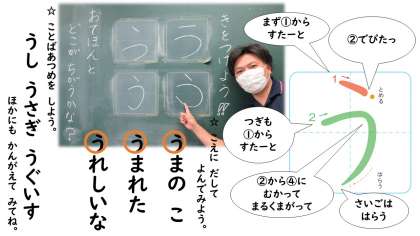 まず①から
すたーと
②でぴたっ
1
とめる
つぎも
①から
すたーと
2
②から④に
むかって
まるくまがって
はらう
さいごは
はらう
きをつけよう!!
う
う
う
う
おてほんと
どこがちがうかな?
☆ こえに だして
よんでみよう。
うまの こ
うまれた
うれしいな
☆ ことばあつめを しよう。
うし うさぎ うぐいす
ほかにも かんがえて みてね。